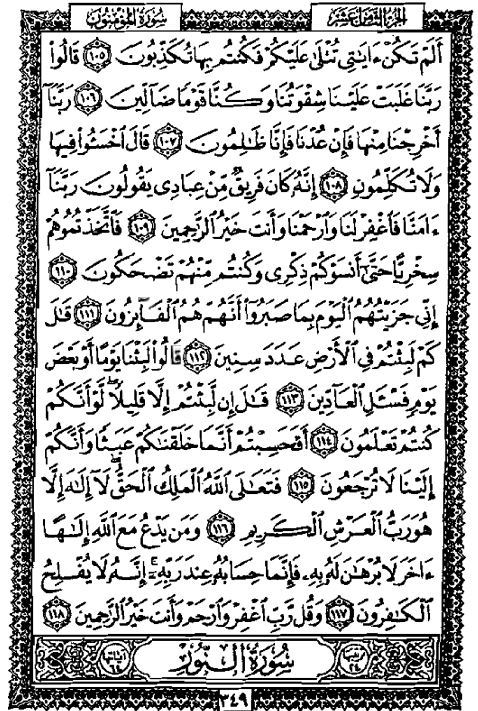 الجزء الثامن عشر سورة المؤمنون
أَلَمْ تَكُنْ ءَايَٰتِى تُتْلَىٰ عَلَيْكُمْ فَكُنتُم بِهَا تُكَذِّبُونَ ١٠٥ قَالُوا۟
رَبَّنَا غَلَبَتْ عَلَيْنَا شِقْوَتُنَا وَكُنَّا قَوْمًا ضَآلِّينَ ١٠٦ رَبَّنَآ
أَخْرِجْنَا مِنْهَا فَإِنْ عُدْنَا فَإِنَّا ظَٰلِمُونَ ١٠٧ قَالَ ٱخْسَـُٔوا۟ فِيهَا
وَلَا تُكَلِّمُونِ ١٠٨ إِنَّهُۥ كَانَ فَرِيقٌ مِّنْ عِبَادِى يَقُولُونَ رَبَّنَآ
ءَامَنَّا فَٱغْفِرْ لَنَا وَٱرْحَمْنَا وَأَنتَ خَيْرُ ٱلرَّٰحِمِينَ ١٠٩ فَٱتَّخَذْتُمُوهُمْ
سِخْرِيًّا حَتَّىٰٓ أَنسَوْكُمْ ذِكْرِى وَكُنتُم مِّنْهُمْ تَضْحَكُونَ ١١٠
إِنِّى جَزَيْتُهُمُ ٱلْيَوْمَ بِمَا صَبَرُوٓا۟ أَنَّهُمْ هُمُ ٱلْفَآئِزُونَ ١١١ قَٰلَ
كَمْ لَبِثْتُمْ فِى ٱلْأَرْضِ عَدَدَ سِنِينَ ١١٢ قَالُوا۟ لَبِثْنَا يَوْمًا أَوْ بَعْضَ
يَوْمٍ فَسْـَٔلِ ٱلْعَآدِّينَ ١١٣ قَٰلَ إِن لَّبِثْتُمْ إِلَّا قَلِيلًا ۖ لَّوْ أَنَّكُمْ
كُنتُمْ تَعْلَمُونَ ١١٤ أَفَحَسِبْتُمْ أَنَّمَا خَلَقْنَٰكُمْ عَبَثًا وَأَنَّكُمْ
إِلَيْنَا لَا تُرْجَعُونَ ١١٥ فَتَعَٰلَى ٱللَّهُ ٱلْمَلِكُ ٱلْحَقُّ ۖ لَآ إِلَٰهَ إِلَّا
هُوَ رَبُّ ٱلْعَرْشِ ٱلْكَرِيمِ ١١٦ وَمَن يَدْعُ مَعَ ٱللَّهِ إِلَٰهًا
ءَاخَرَ لَا بُرْهَٰنَ لَهُۥ بِهِۦ فَإِنَّمَا حِسَابُهُۥ عِندَ رَبِّهِۦٓ ۚ إِنَّهُۥ لَا يُفْلِحُ
ٱلْكَٰفِرُونَ ١١٧ وَقُل رَّبِّ ٱغْفِرْ وَٱرْحَمْ وَأَنتَ خَيْرُ ٱلرَّٰحِمِينَ ١١٨
سُورَةُ النُّورِ
٣٤٩